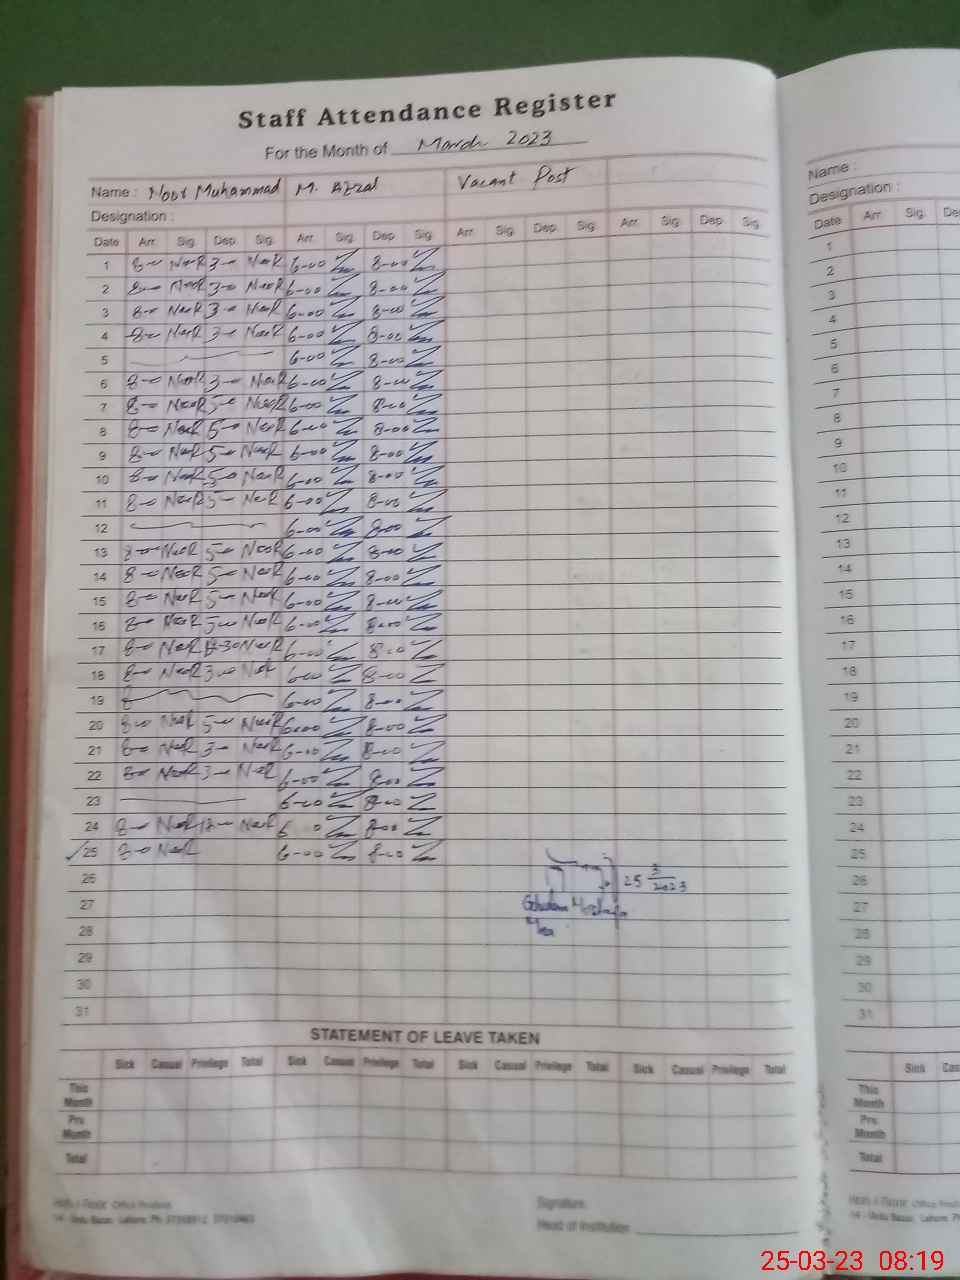 Staff Attendance Register
For the Month of March 2023
Name : Noor Muhammad M. Afzal Vacant Post
Designation :
Date Arr. Sig. Dep. Sig. Arr. Sig. Dep. Sig. Arr. Sig. Dep. Sig. Arr. Sig. Dep. Sig.
1 8-00 NooR 3-00 NooR 6-00 8-00
2 8-00 NooR 3-00 NooR 6-00 8-00
3 8-00 NooR 3-00 NooR 6-00 8-00
4 8-00 NooR 3-00 NooR 6-00 8-00
5 6-00 8-00
6 8-00 NooR 3-00 NooR 6-00 8-00
7 8-00 NooR 5-00 NooR 6-00 8-00
8 8-00 NooR 5-00 NooR 6-00 8-00
9 8-00 NooR 5-00 NooR 6-00 8-00
10 8-00 NooR 5-00 NooR 6-00 8-00
11 8-00 NooR 5-00 NooR 6-00 8-00
12 6-00 8-00
13 8-00 NooR 5-00 NooR 6-00 8-00
14 8-00 NooR 5-00 NooR 6-00 8-00
15 8-00 NooR 5-00 NooR 6-00 8-00
16 8-00 NooR 5-00 NooR 6-00 8-00
17 8-00 NooR 12-30 NooR 6-00 8-00
18 8-00 NooR 3-00 NooR 6-00 8-00
19 6-00 8-00
20 8-00 NooR 5-00 NooR 6-00 8-00
21 8-00 NooR 3-00 NooR 6-00 8-00
22 8-00 NooR 3-00 NooR 6-00 8-00
23 6-00 8-00
24 8-00 NooR 12-00 NooR 6 0 8-00
25 8-00 NooR 6-00 8-00
26 25 3/2023
27
28
29
30
31
STATEMENT OF LEAVE TAKEN
Sick Casual Privilege Total Sick Casual Privilege Total Sick Casual Privilege Total Sick Casual Privilege Total
This Month
Pre. Month
Total
Office Products
14 - Urdu Bazar, Lahore. Ph:
Signature
Head of Institution
Name :
Designation :
Date Arr. Sig. De
1
2
3
4
5
6
7
8
9
10
11
12
13
14
15
16
17
18
19
20
21
22
23
24
25
26
27
28
29
30
31
Sick Cas
This Month
Pre. Month
Total
14 - Urdu Bazar, Lahore. P
25-03-23 08:19